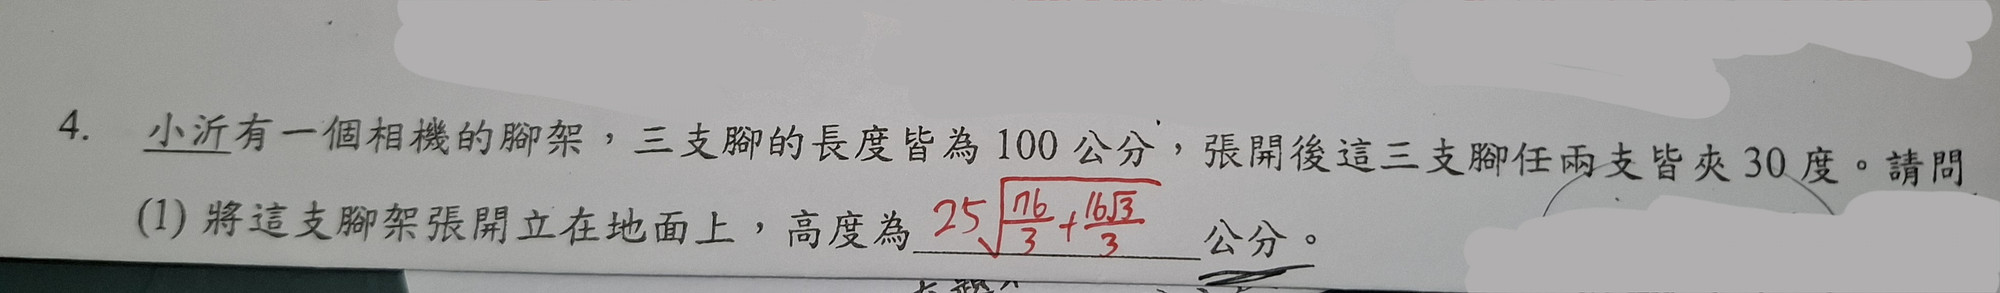 4. 小沂有一個相機的腳架，三支腳的長度皆為 100 公分，張開後這三支腳任兩支皆夾 30 度。請問
(1) 將這支腳架張開立在地面上，高度為 25√(16/3+16√3/3) 公分。